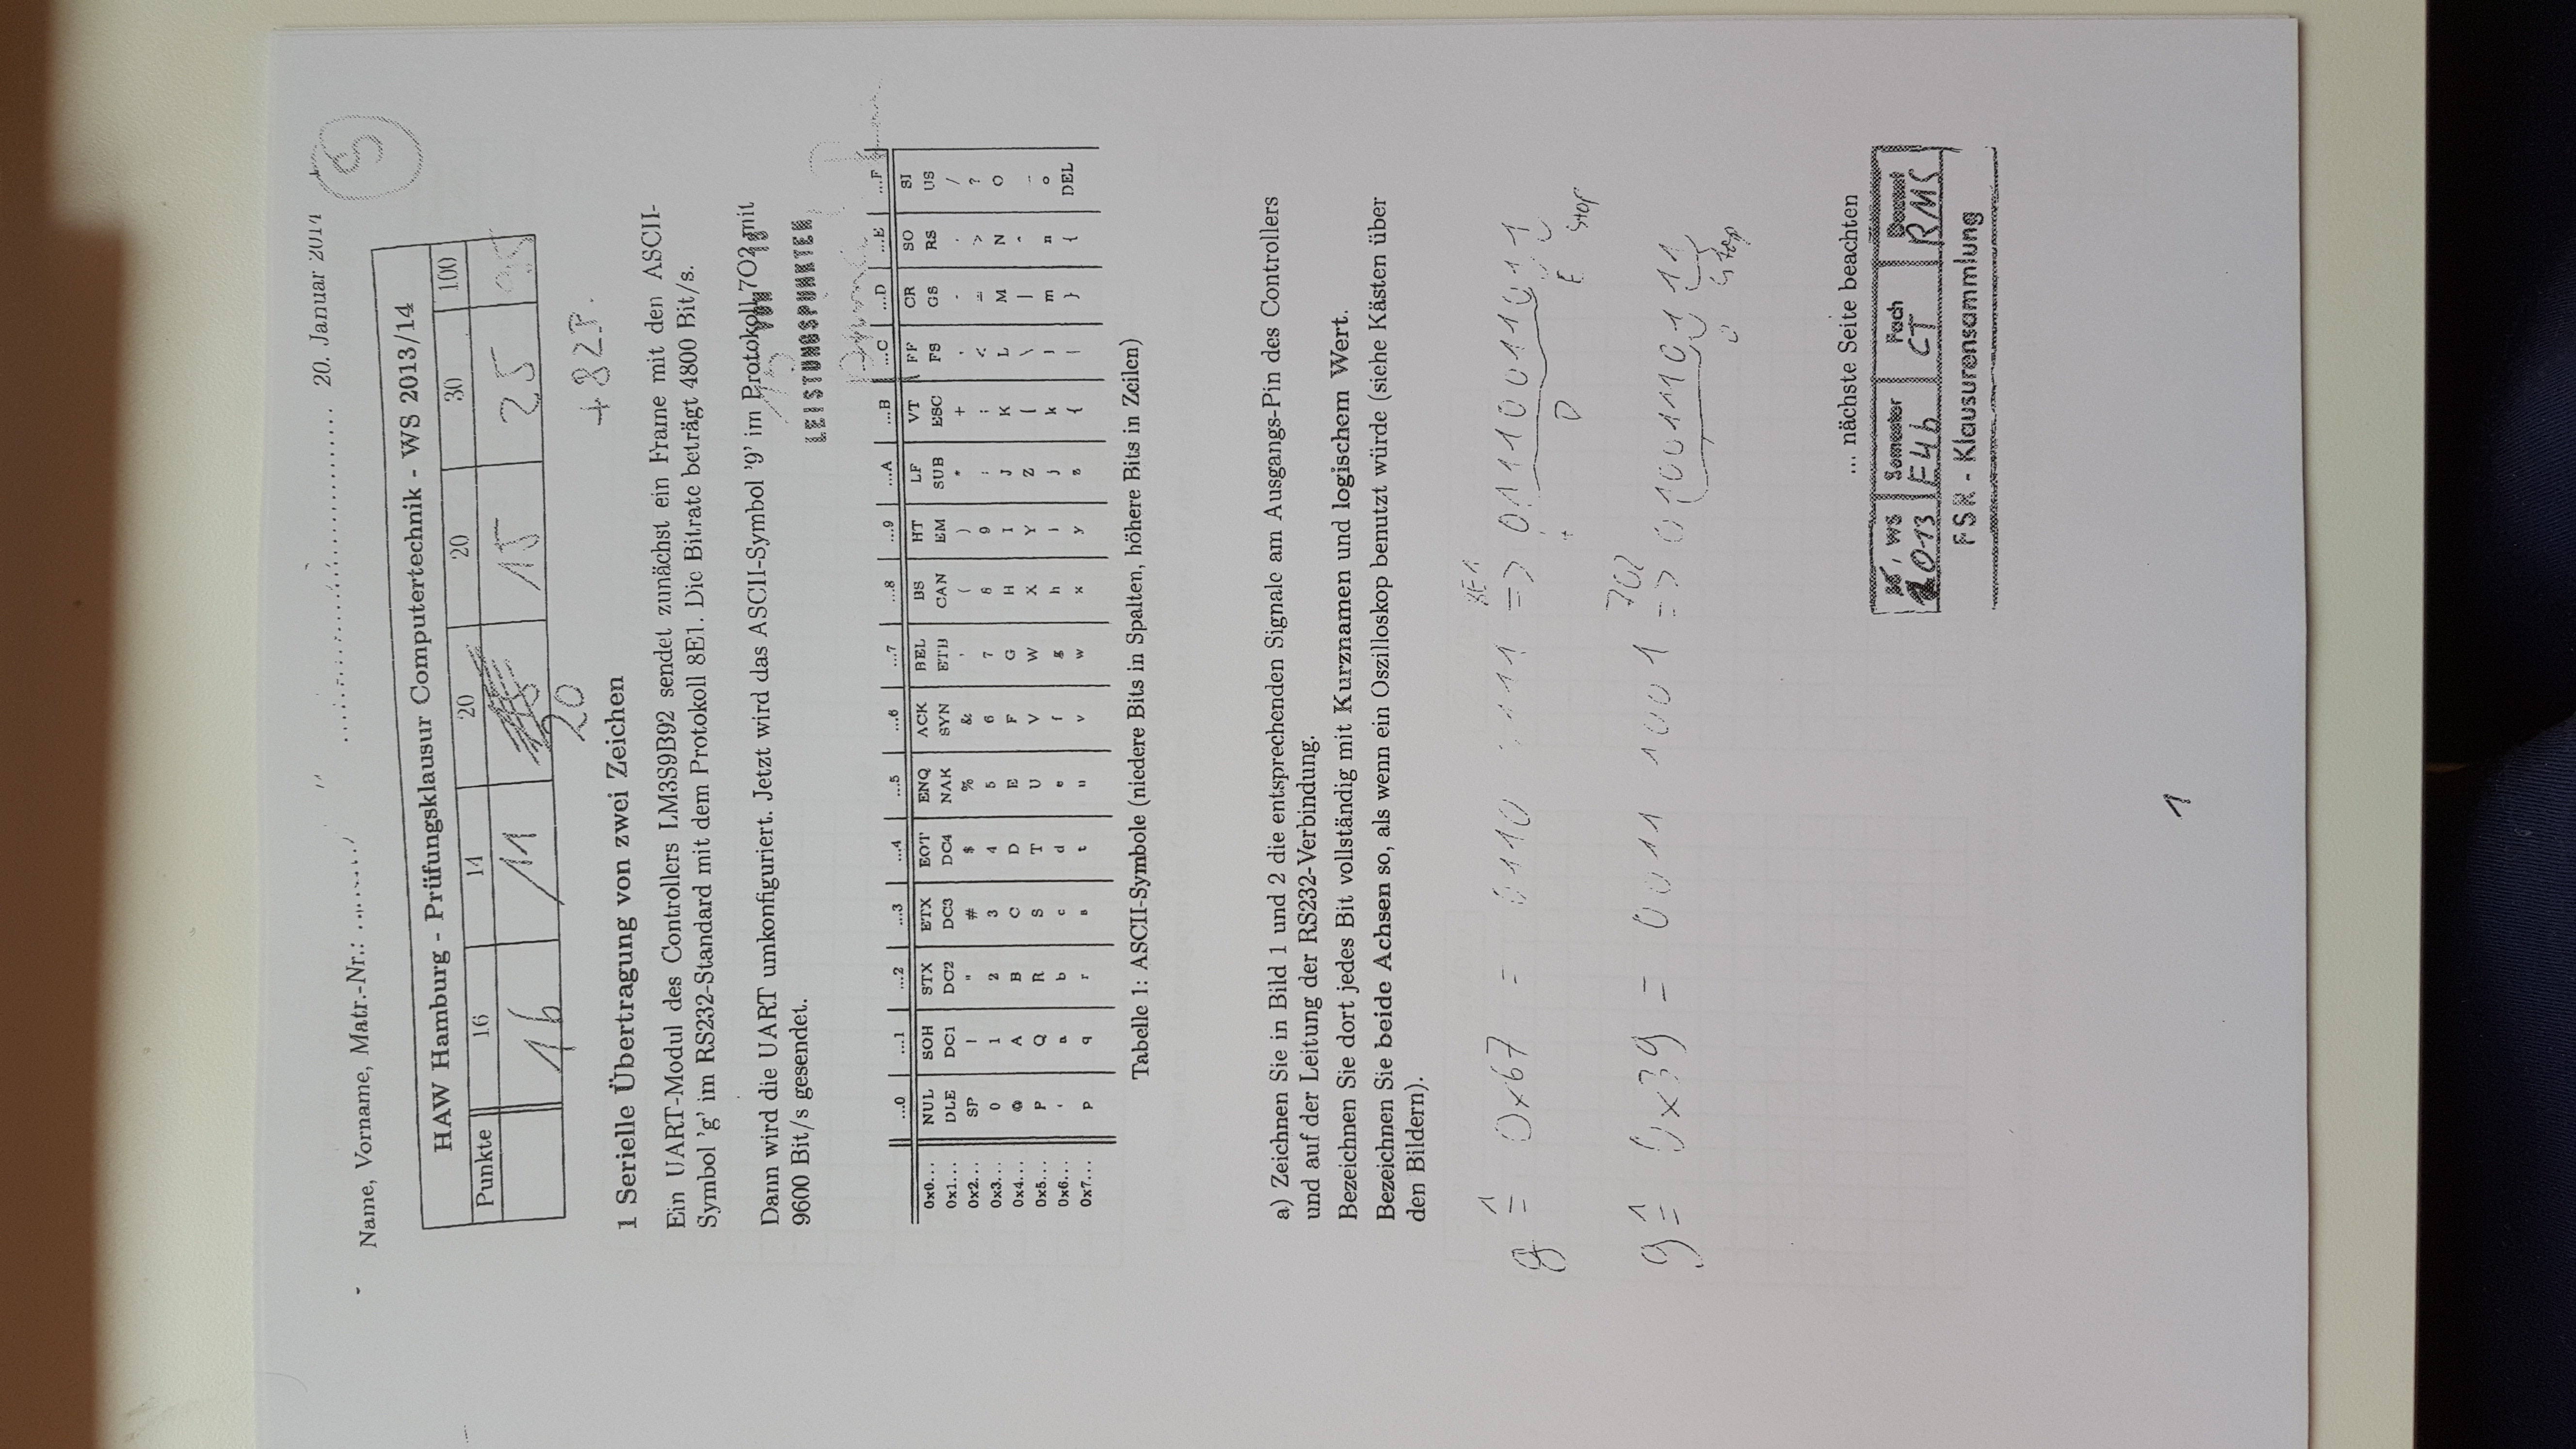 20. Januar 2014
Name, Vorname, Matr.-Nr.:
5
HAW Hamburg - Prüfungsklausur Computertechnik - WS 2013/14
Punkte 16 14 20 20 30 100
16 11 15 25
20
+82P.
1 Serielle Übertragung von zwei Zeichen
Ein UART-Modul des Controllers LM3S9B92 sendet zunächst ein Frame mit den ASCII-
Symbol 'g' im RS232-Standard mit dem Protokoll 8E1. Die Bitrate beträgt 4800 Bit/s.
Dann wird die UART umkonfiguriert. Jetzt wird das ASCII-Symbol '9' im Protokoll 7O2 mit
9600 Bit/s gesendet.
15 VON 15
LEISTUNGSPUNKTEN
...0 ...1 ...2 ...3 ...4 ...5 ...6 ...7 ...8 ...9 ...A ...B ...C ...D ...E ...F
0x0... NUL SOH STX ETX EOT ENQ ACK BEL BS HT LF VT FF CR SO SI
0x1... DLE DC1 DC2 DC3 DC4 NAK SYN ETB CAN EM SUB ESC FS GS RS US
0x2... SP ! " # $ % & ' ( ) * + , - . /
0x3... 0 1 2 3 4 5 6 7 8 9 : ; < = > ?
0x4... @ A B C D E F G H I J K L M N O
0x5... P Q R S T U V W X Y Z [ \ ] ^ _
0x6... ‘ a b c d e f g h i j k l m n o
0x7... p q r s t u v w x y z { | } { DEL
Tabelle 1: ASCII-Symbole (niedere Bits in Spalten, höhere Bits in Zeilen)
a) Zeichnen Sie in Bild 1 und 2 die entsprechenden Signale am Ausgangs-Pin des Controllers
und auf der Leitung der RS232-Verbindung.
Bezeichnen Sie dort jedes Bit vollständig mit Kurznamen und logischem Wert.
Bezeichnen Sie beide Achsen so, als wenn ein Oszilloskop benutzt würde (siehe Kästen über
den Bildern).
8E1
g ≙ 0x67 = 0110 0111 => 01110011011
D E Stop
7O2
9 ≙ 0x39 = 0011 1001 => 01001110111
O Stop
... nächste Seite beachten
SS, WS Semester Fach Dozent
2013 E4b CT RMS
FSR - Klausurensammlung
1